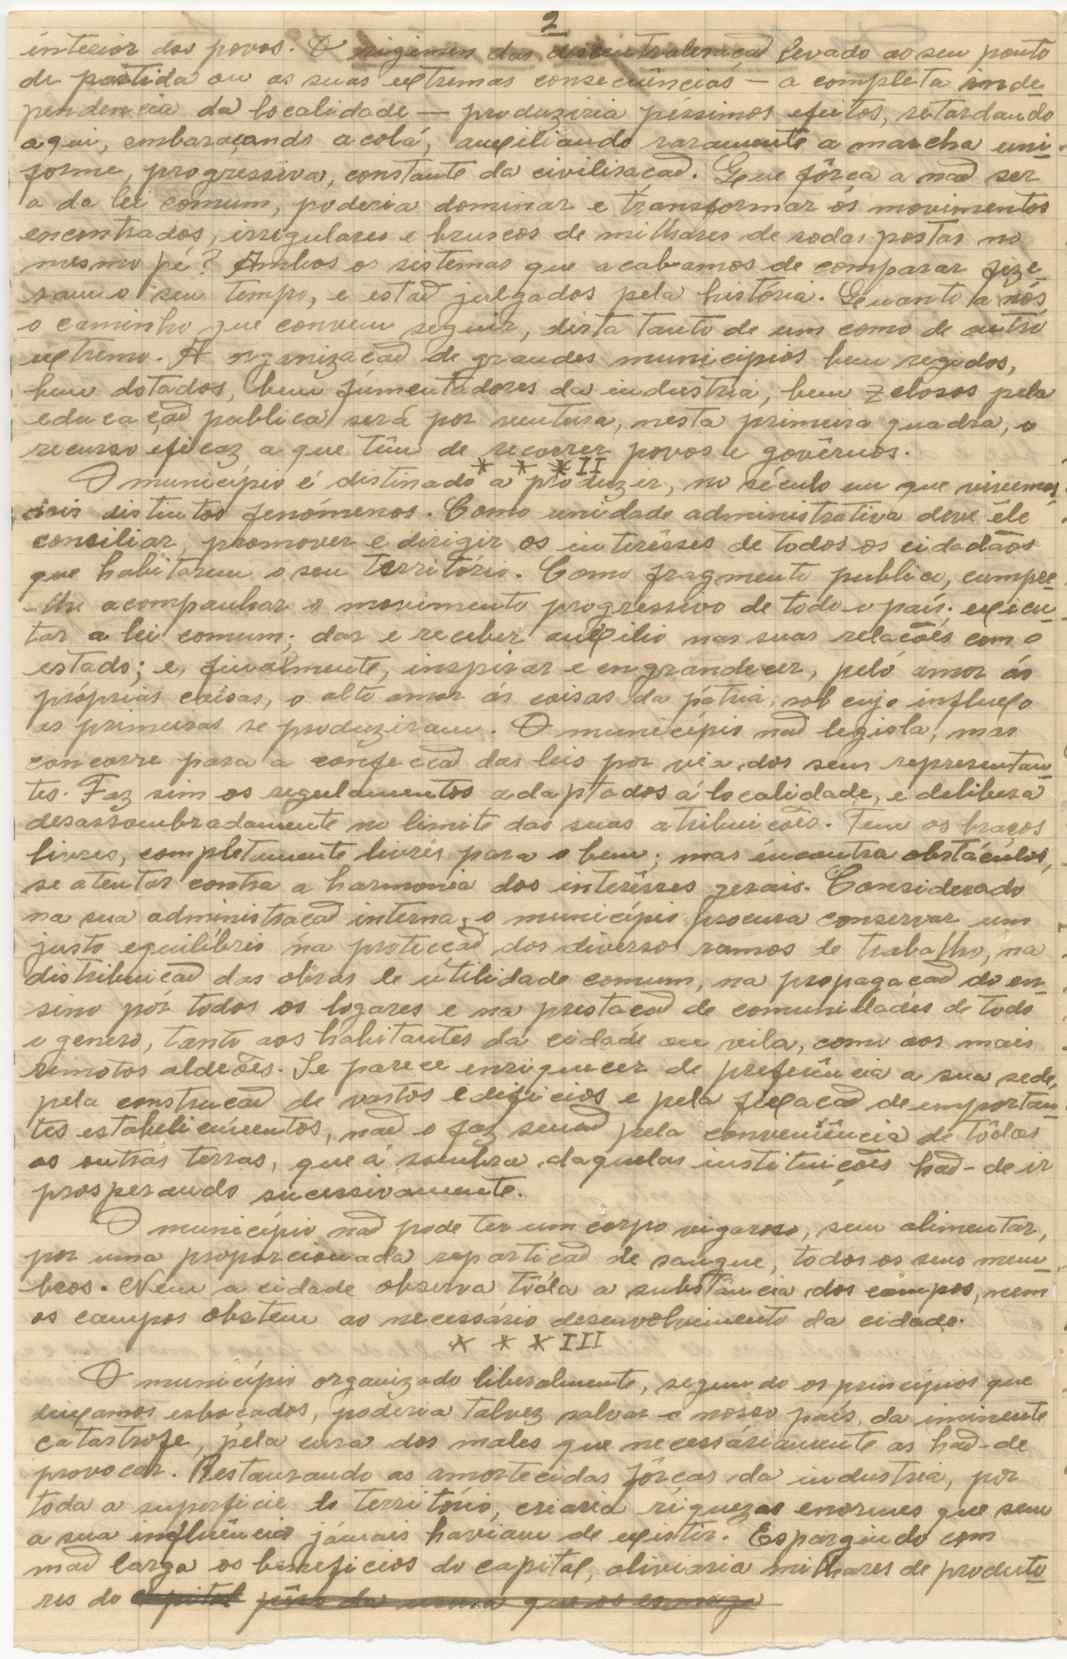 2
interior dos povos. O regimen da descentralização levado ao seu ponto
de partida ou as suas extremas consecuências — a completa inde-
pendencia da localidade — produziria péssimos efeitos, retardando
aqui, embaraçando acolá, auxiliando raramente a marcha uni-
forme, progressiva, constante da civilisação. Que fôrça a não ser
a da lei comum, poderia dominar e transformar os movimentos
encontrados, irregulares e bruscos de milhares de rodas postas no
mesmo pé? Ambos os sistemas que acabamos de comparar fize-
ram o seu tempo, e estão julgados pela história. Quanto a nós
o caminho que convem seguir, dista tanto de um como de outro
extremo. A organização de grandes municipios bem regidos,
bem dotados, bem fomentadores da industria, bem zelosos pela
educação publica será por ventura, nesta primeira quadra, o
recurso eficaz a que têm de recorrer povos e govêrnos.
* * * II
O município é distinado a produzir, no século em que vivemos,
dois distintos fenómenos. Como unidade administrativa deve êle
conciliar, promover e dirigir os interêsses de todos os cidadãos
que habitarem o seu território. Como fragmento publico, cumpre-
-lhe acompanhar o movimento progressivo de todo o país; execu-
tar a lei comum; dar e receber auxílio nas suas relações com o
estado; e, finalmente, inspirar e engrandecer, pelo amor ás
próprias coisas, o alto amor ás coisas da pátria, sob cujo influxo
as primeiras se produziram. O município não legisla, mas
concorre para a confecção das leis por via dos seus representan-
tes. Faz sim os regulamentos adaptados á localidade, e delibera
desassombradamente no limite das suas atribuicões. Tem os braços
livres, completamente livres para o bem; mas encontra obstáculos,
se atentar contra a harmonia dos interêsses gerais. Considerado
na sua administração interna, o município procura conservar um
justo equilíbrio na protecção dos diversos ramos de trabalho, na
distribuicão das obras de utilidade comum, na propagação do en-
sino por todos os logares e na prestação de comunidades de todo
o genero, tanto aos habitantes da cidade ou vila, como aos mais
remotos aldeões. Se parece enriquecer de preferência a sua sede,
pela construcão de vastos edificios e pela fixação de importan-
tes estabelicimentos, não o faz senão pela conveniência de tôdas
as outras terras, que á sombra daquelas instituições hão-de ir
prosperando sucessivamente.
O município não pode ter um corpo vigoroso, sem alimentar,
por uma proporcionada repartição de sangue, todos os seus mem-
bros. Nem a cidade observa tôda a substância dos campos, nem
os campos obstem ao necessário desenvolvimento da cidade.
* * * III
O município organizado liberalmente, segundo os principios que
deixamos esbocados, poderia talvez salvar o nosso país da iminente
catastrofe, pela cura dos males que necessáriamente as hão-de
provocar. Restaurando as amortecidas fôrças da industria, por
toda a superficie do território, criaria riquezas enormes que sem
a sua influência jámais haviam de existir. Espargindo com
mão larga os beneficios do capital, aliviaria milhares de produto-
res do capital juro da usura que os esmaga